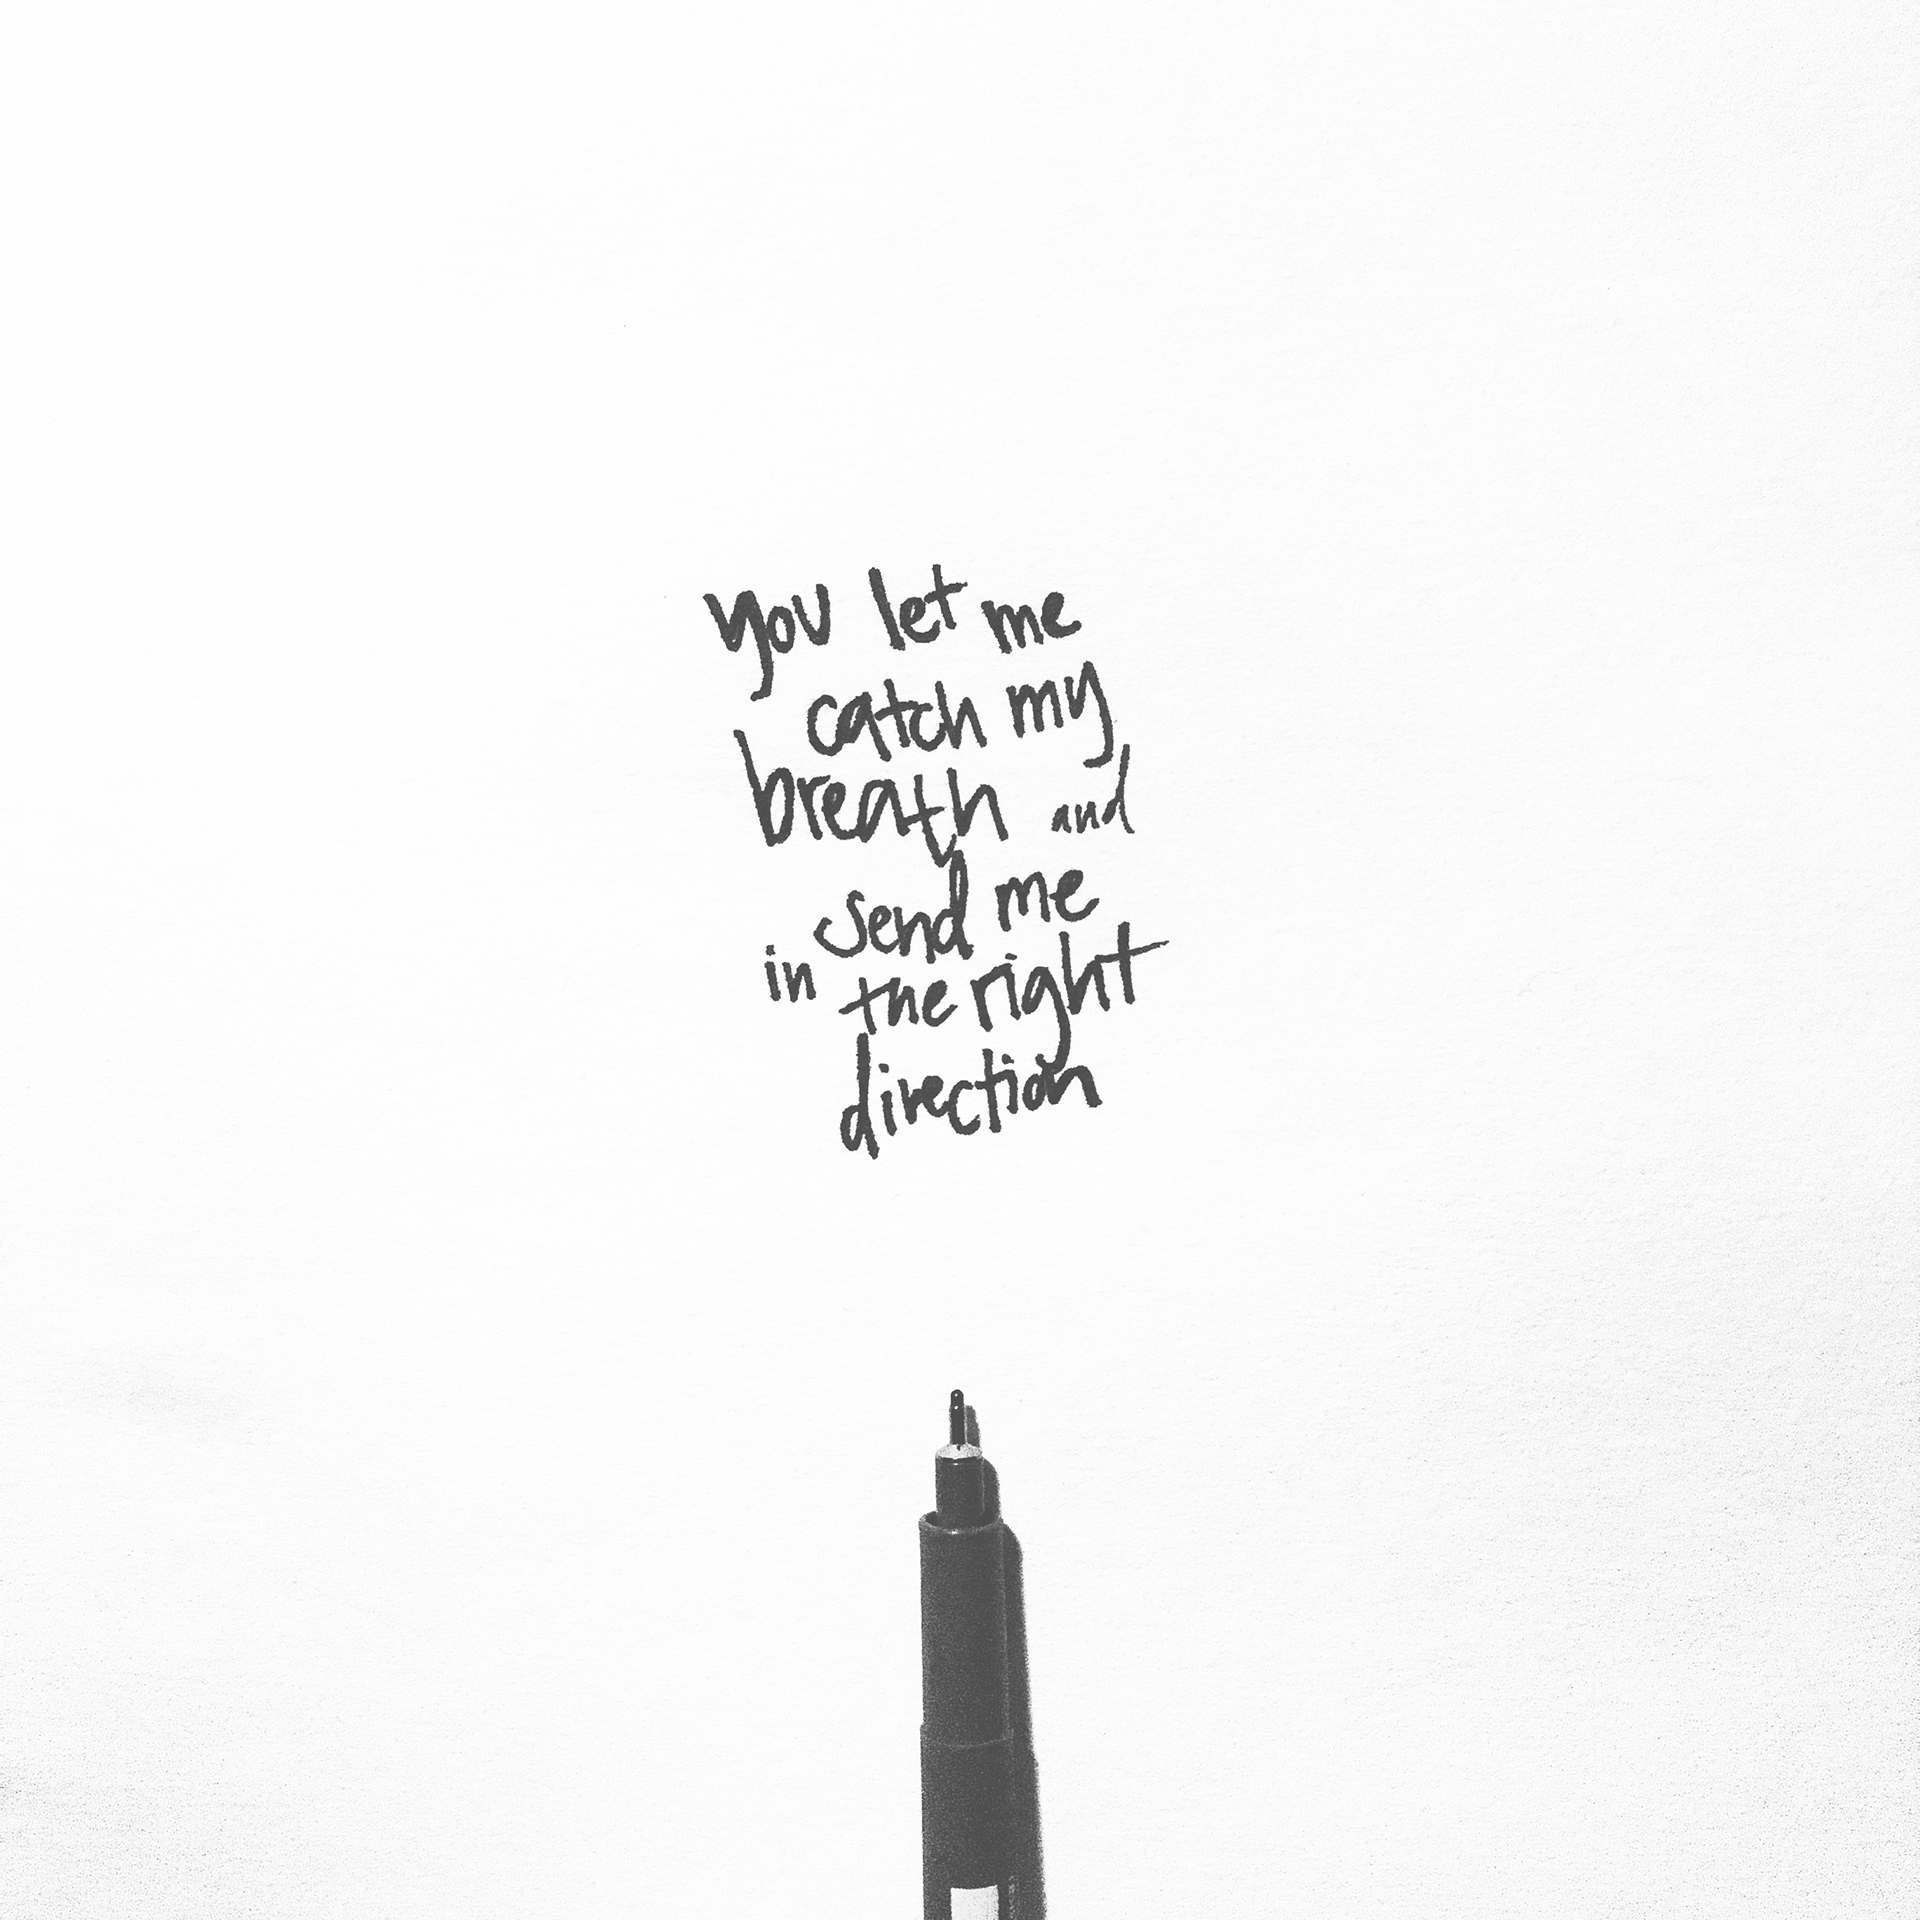 you let me
catch my
breath and
send me
in the right
direction